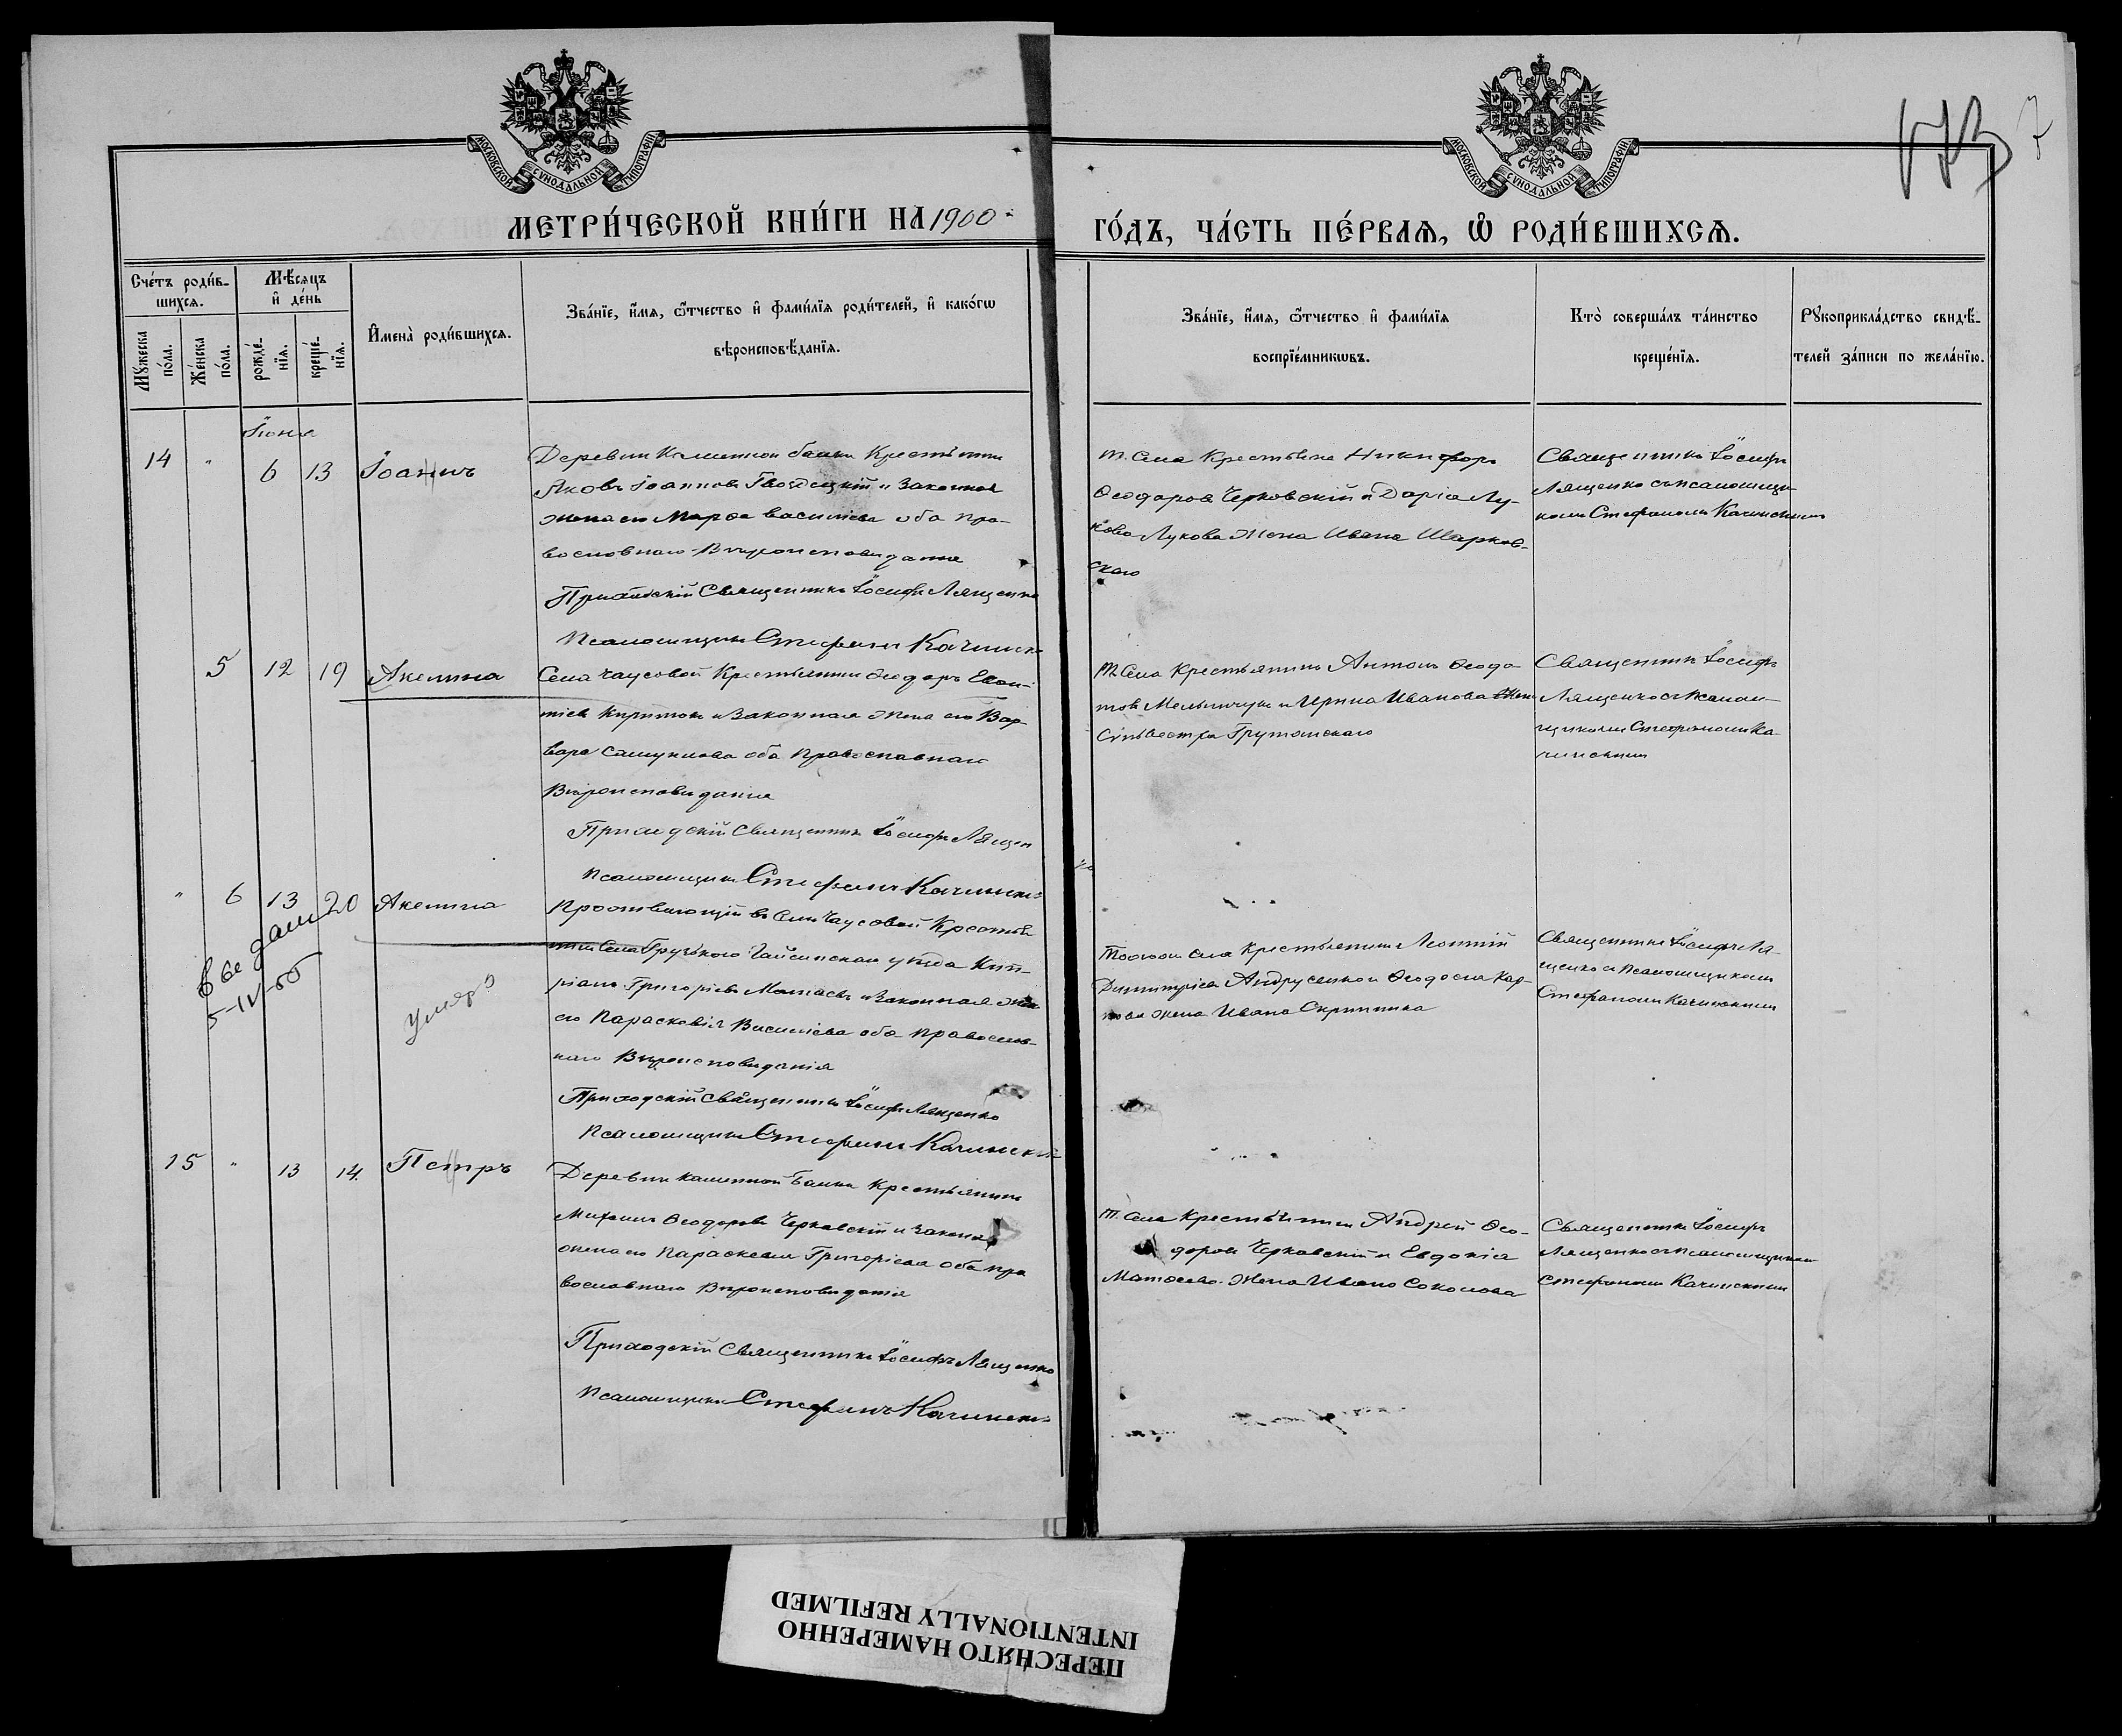 МОСКОВСКОЙ СѴНОДАЛЬНОЙ ТИПОГРАФІИ
МОСКОВСКОЙ СѴНОДАЛЬНОЙ ТИПОГРАФІИ
7
МЕТРИ́ЧЕСКОЙ КНИ́ГИ НА 1900
ГО́ДЪ, ЧА́СТЬ ПЕ́РВАѦ, Ѽ РОДИ́ВШИХСѦ.
Сче́тъ роди́в-
шихсѧ.
Мѣ́сѧцъ
и҆ де́нь
И҆мена̀ роди́вшихсѧ.
Зва́нїе, и҆́мѧ, ѻ҆́тчество и҆ фами́лїѧ роди́телей, и҆ како́гѡ
вѣроисповѣ́данїѧ.
Мꙋ́жеска
по́ла.
Же́нска
по́ла.
рожде́-
нїѧ.
креще́-
нїѧ.
Зва́нїе, и҆́мѧ, ѻ҆́тчество и҆ фами́лїѧ
воспрїе́мникѡвъ.
Кто̀ соверша́лъ та́инство
креще́нїѧ.
Рꙋкоприкла́дство свидѣ́-
телей за́писи по жела́нїю.
Іюня
14 " 6 13 Іоаннъ
Деревни Каменной балки Крестьянин
Яковъ Іоанновъ Гвоздецкій и Законная
жена его Марѳа Василіева оба пра-
вославнаго Вѣроисповѣданія
Приходскій Священникъ Іосифъ Лященко
Псаломщикъ Стефанъ Качинскі
Т. Села Крестьянинъ Никифоръ
Ѳеодоровъ Черковскій и Дарія Лу-
кова Лукова Жена Ивана Шарков-
скаго
Священникъ Іосифъ
Лященко съ псаломщи-
комъ Стефаномъ Качинскимъ
5 12 19 Акелина
Села Чаусовой Крестьянинъ Ѳеодоръ
и Законная Жена его Вар-
вара Самуилова оба Православнаго
Вѣроисповѣданія
Приходскій Священникъ Іосифъ Лящен
Псаломщикъ Стефанъ Качинскі
Т. Села Крестьянинъ Антонъ Ѳеодо
товъ Мельничукъ и Ирина Иванова Жен
Сильвестра
Священникъ Іосифъ
Лященко съ Псалом-
щикомъ Стефаномъ Ка-
чинскимъ
" 6 13 20 Акелина
Проживающій въ Селѣ Чаусовой Крестья
нинъ Села Грузького Гайсинскаго уѣзда Кип-
ріанъ Григоріевъ и Законная жена
его Параскевія Василіева оба Православ-
наго Вѣроисповѣданія
Приходскій Священникъ Іосифъ Лященко
Псаломщикъ Стефанъ Качинскій
умеръ
5-IV-55
Тогожъ села Крестьянинъ Леонтій
Димитріевъ Андрусенко и Ѳеодосія Кар-
пова жена Ивана Скрипника
Священникъ Іосифъ Ля-
щенко съ Псаломщикомъ
Стефаномъ Качинскимъ
15 " 13 14. Петръ
Деревни Каменной балки Крестьянинъ
Михаилъ Ѳеодоровъ Черковскій и Законная
жена его Параскевія Григоріева оба пра
вославнаго Вѣроисповѣданія
Приходскій Священникъ Іосифъ Лященко
Псаломщикъ Стефанъ Качинскі
Т. Села Крестьянинъ Андрей Ѳео-
доровъ Черковскій и Евдокія
Матѳеева Жена Ивана Соколова
Священникъ Іосифъ
Лященко съ Псаломщикомъ
Стефаномъ Качинскимъ
ПЕРЕСНЯТО НАМЕРЕННО
INTENTIONALLY REFILMED